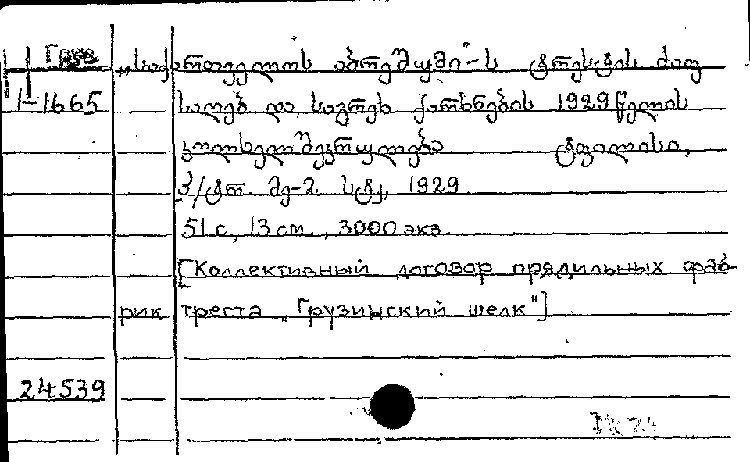 Груз
„საქართველოს აბრეშუმი“-ს ტრესტის ძაფ
1-1665 საღებ და საგრეხ ქარხნების 1929 წელის
კოლხელშეკრულება ტფილისი,
პ/ტრ. მე-2. სტ., 1929
51 с, 13 см., 3000 экз.
[Коллективный договор прядильных фаб
рик треста „Грузинский шелк"]
24539